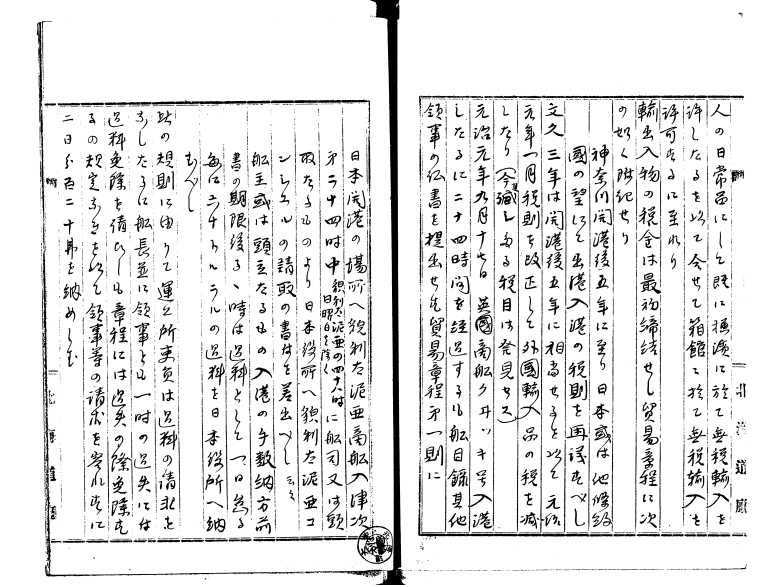 人の日常品にして既に横濱に於て無税輸入を
許したるを以て今せて箱館に於て無税輸入を
許可するに至れり
輸出入物の税金は最初締結せし貿易章程に次
の如く附記せり
神奈川開港後五年に至り日本或は他條約
國の望にて出港入港の税則を再議すべし
文久三年は開港後五年に相当せるを以て元治
元年一月税則を改正して外國輸入品の税を減
したり(今減したる税目は発見せス)
元治元年九月十七日英國商船クヰッキ号入港
したるに二十四時間を経過するも船目録其他
領事の仏書を提出せす貿易章程第一則に
日本開港の場所へ貌利太泥亜商船入津次
第二十四時中貌利太泥亜の四十八時日曜日を除くに船司又は頭
取たるものより日本役所へ貌利太泥亜コ
ンシュルの請取の書付を差出へし云々
船主或は頭立たるもの入港の手数納方前
書の期限後るゝ時は過料として一日怠る
毎に六十トルラルの過料を日本役所へ納
むべし
此の規則に由りて運上所吏員は過料の請求を
なしたるに船長並に領事とも一時の過失には
過料免除を請ひしも章程には過失の際免除する
の規定なきを以て領事等の請求を容れすに
二日分百二十弗を納めしむ
北海道廳